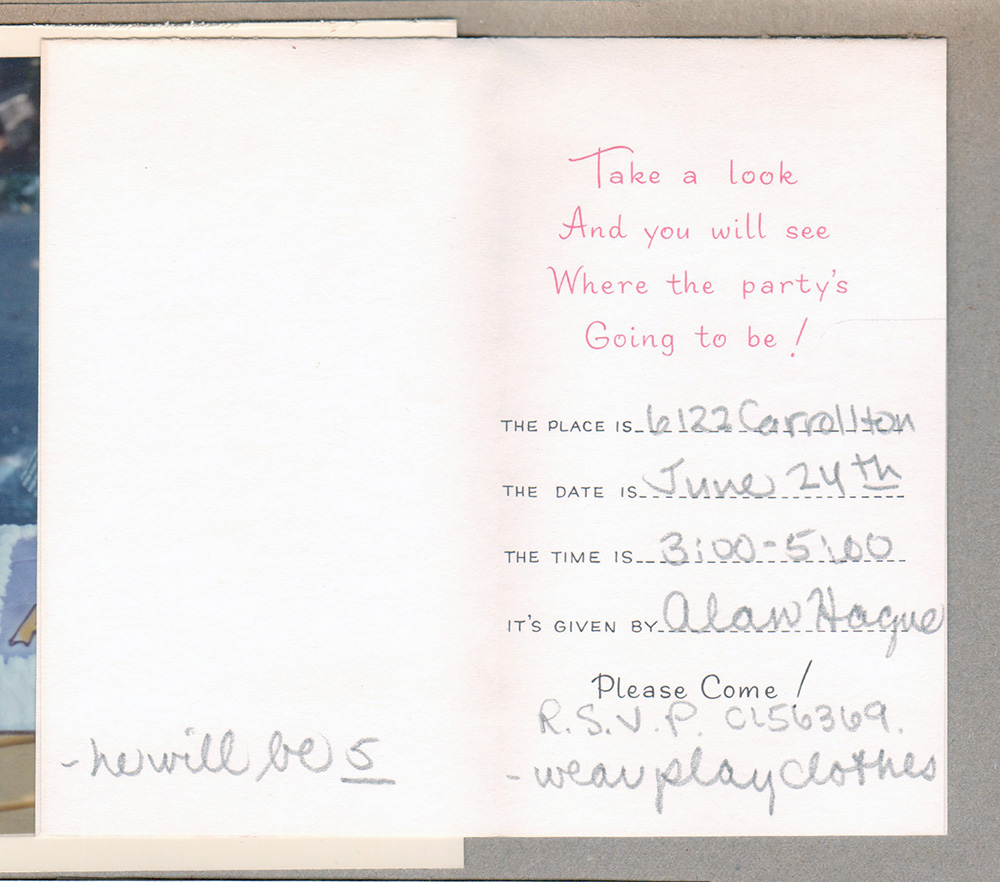 Take a look
And you will see
Where the party's
Going to be!
THE PLACE IS 6122 Carrollton
THE DATE IS June 24th
THE TIME IS 3:00-5:00
IT'S GIVEN BY Alan Hague
Please Come!
R.S.V.P. CL56369.
- wear play clothes
- he will be 5